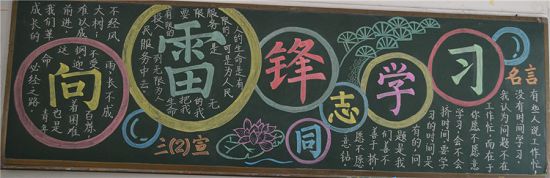 向雷锋同志学习
不经风雨，长不成
大树；不受百炼，
难以成钢。迎着困难
前进，这也是
我们革命青年
成长的必经之路。
人的生命是有
限的，可是为人民
服务是无
限的，我
要把
有限的生命
投入到无限的为人
民服务中去。
三(2)宣
名言
有些人说工作忙，
没有时间学习，
我认为问题不在
工作忙，而在于
你愿不愿意
学习，会不会
挤时间。要学
习的时间是
有的，问
题是我
们善不
善于挤，
愿不愿
意钻。